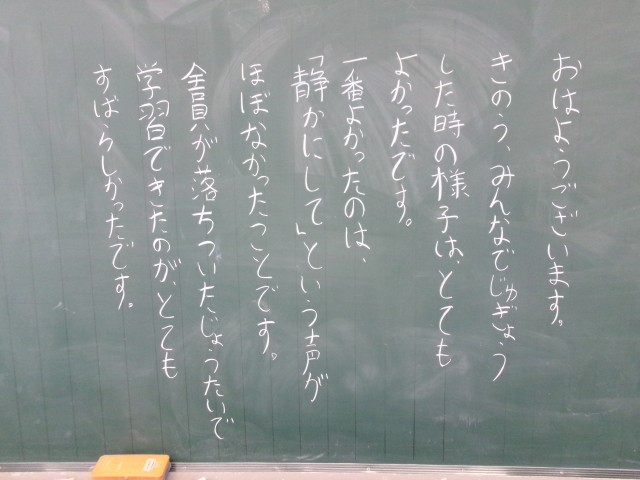 おはようございます。
きのう、みんなでじゅぎょう
した時の様子は、とても
よかったです。
一番よかったのは、
「静かにして」という声が
ほぼなかったことです。
全員が落ちついたじょうたいで
学習できたのが、とても
すばらしかったです。